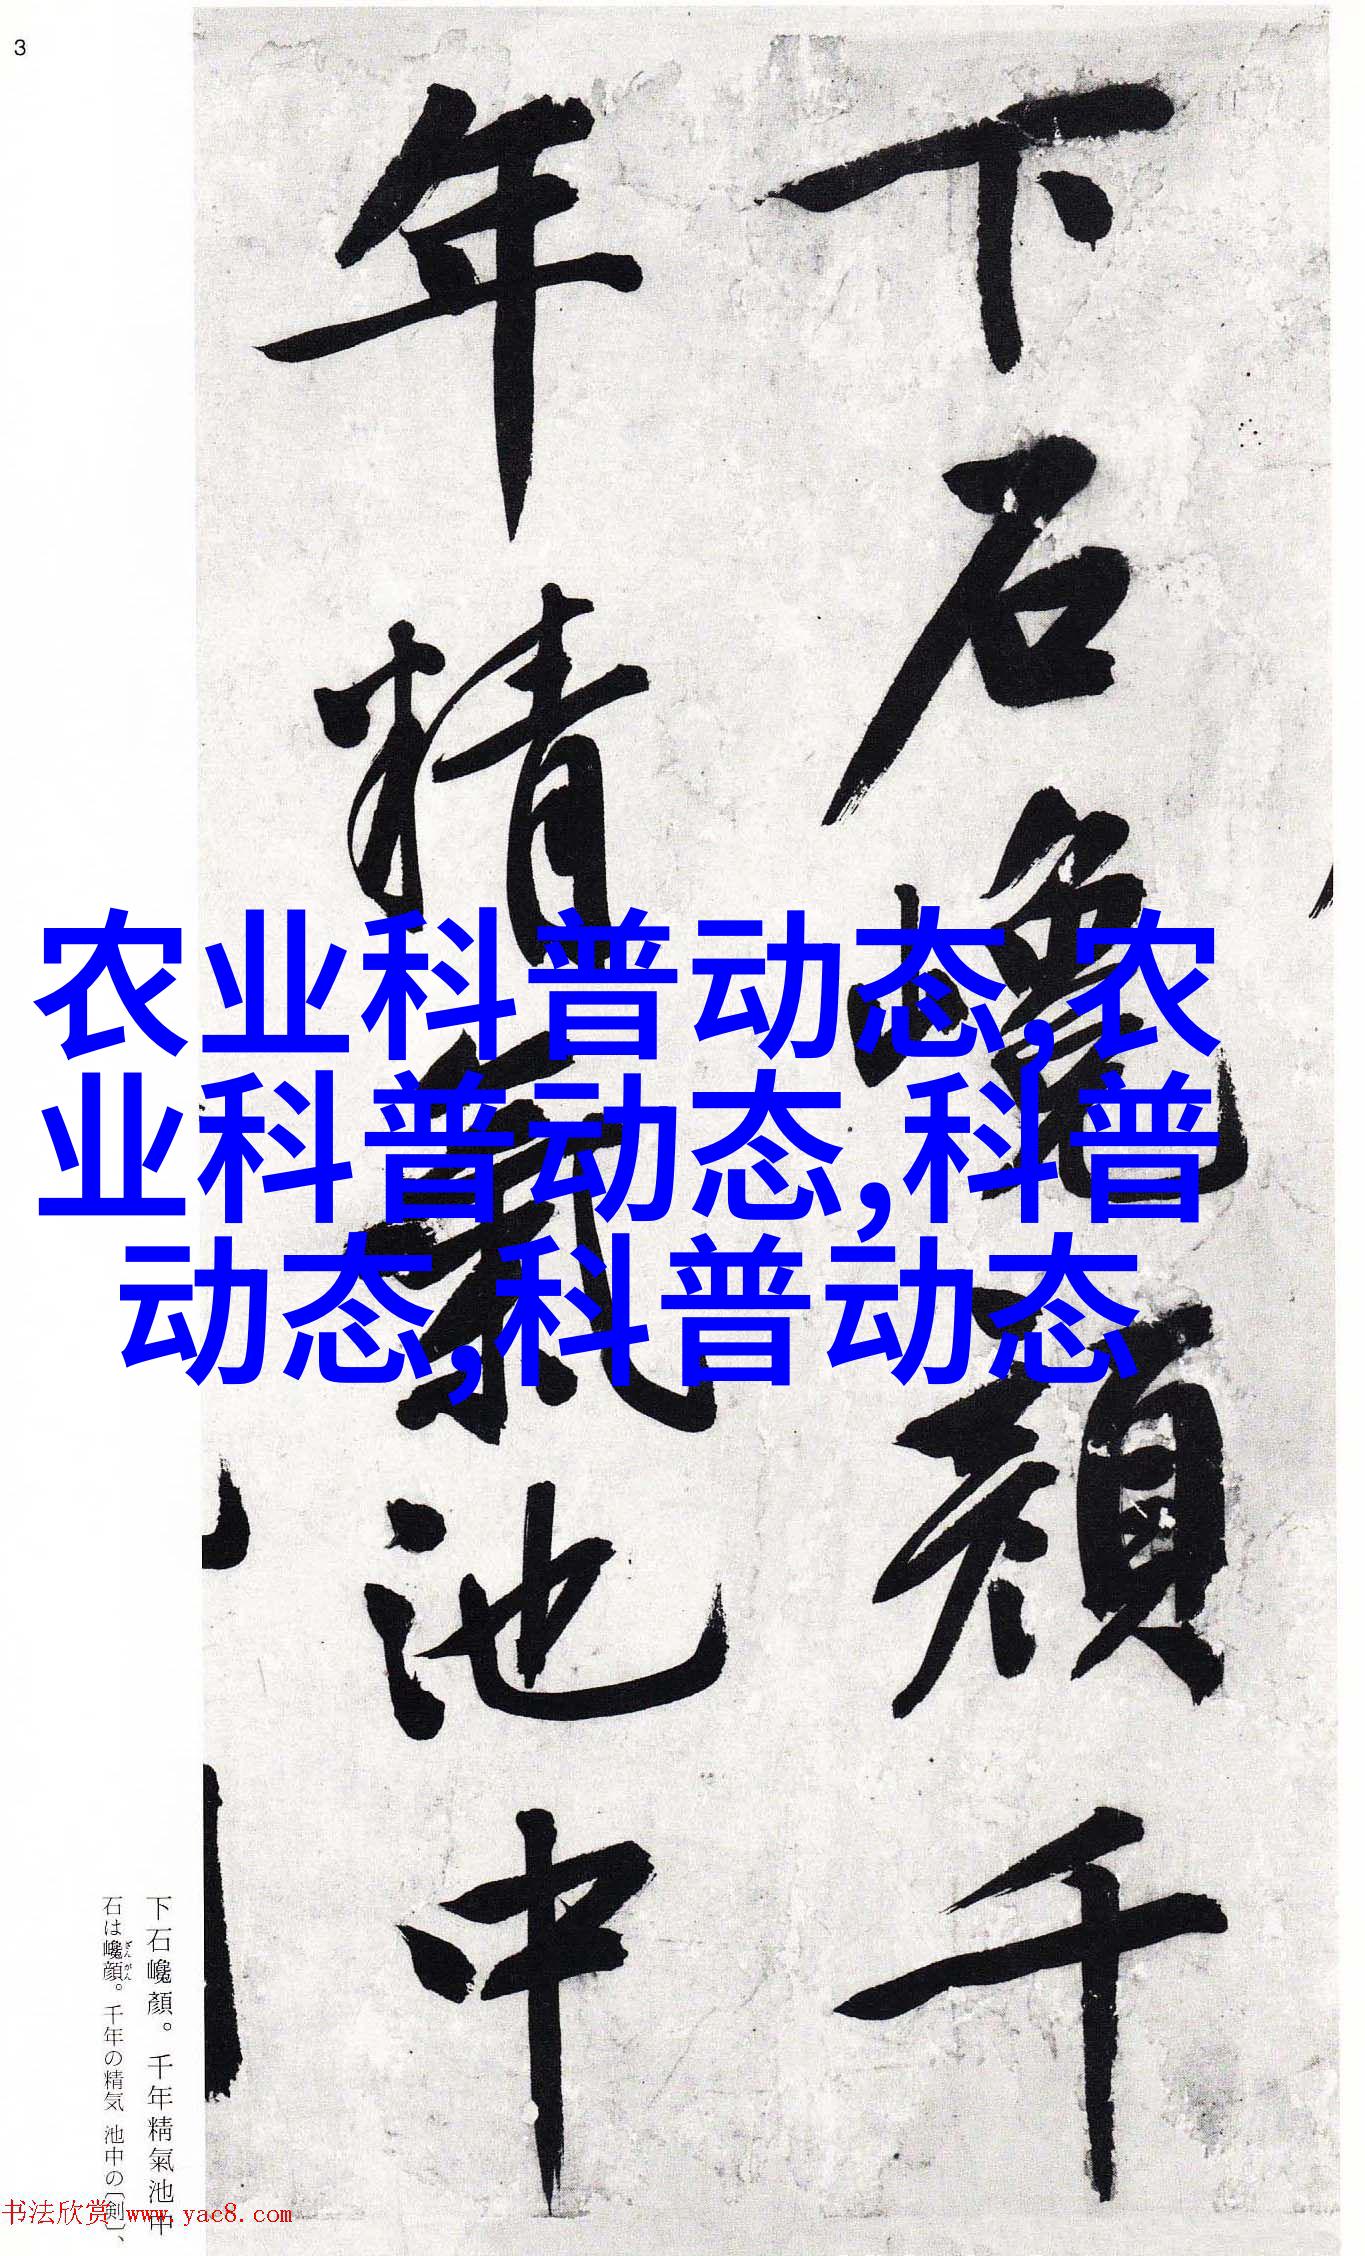 3
下石巉顏千
年精氣池中
农业科普动态,农
业科普动态,科普
动态,科普动态
下石巉顏。千年精氣池中
石は巉顔。千年の精気 池中の〔剣〕、
ざんがん
书法欣赏 www.yac8.com